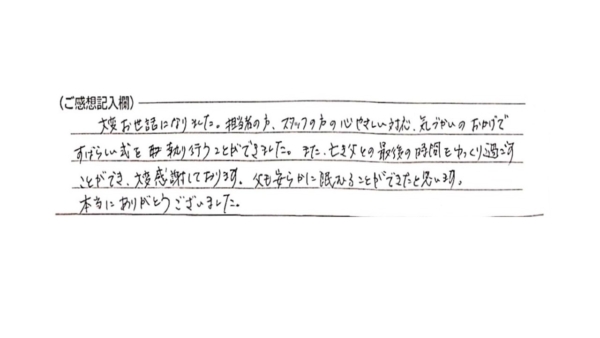 (ご感想記入欄)
大変お世話になりました。担当者の方、スタッフの方の心やさしい対応、気づかいのおかげで
すばらしい式を執り行うことができました。また、亡き父との最後の時間をゆっくり過ごす
ことができ、大変感謝しております。父も安らかに眠ることができたと思います。
本当にありがとうございました。